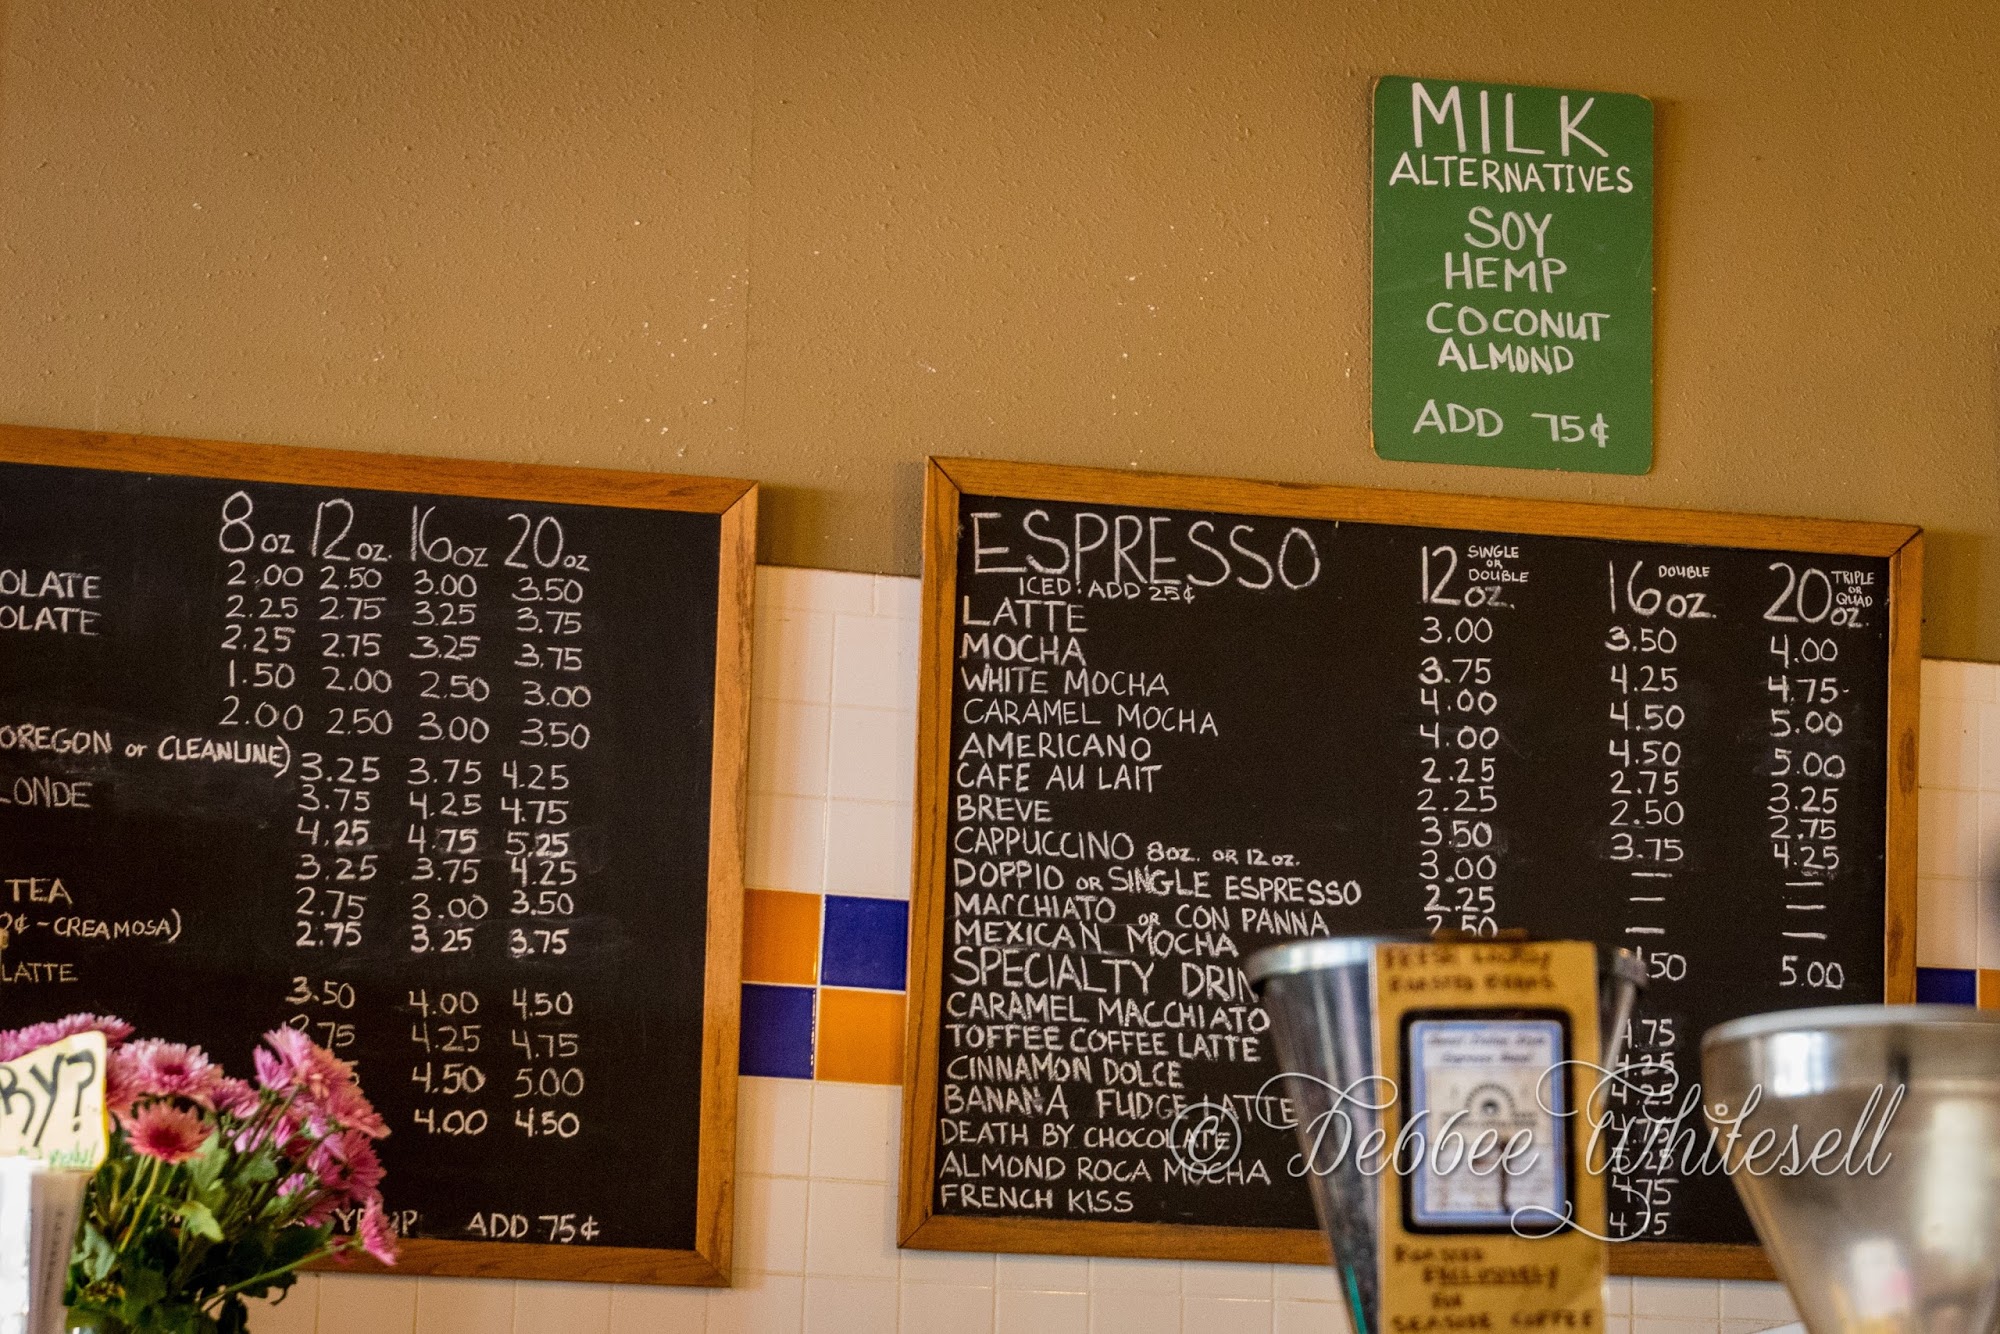 MILK
ALTERNATIVES
SOY
HEMP
COCONUT
ALMOND
ADD 75¢
8oz 12oz. 16oz 20oz
OLATE 2.00 2.50 3.00 3.50
OLATE 2.25 2.75 3.25 3.75
2.25 2.75 3.25 3.75
1.50 2.00 2.50 3.00
2.00 2.50 3.00 3.50
OREGON or CLEANLINE)
3.25 3.75 4.25
LONDE 3.75 4.25 4.75
4.25 4.75 5.25
3.25 3.75 4.25
TEA 2.75 3.00 3.50
¢-CREAMOSA) 2.75 3.25 3.75
LATTE
3.50 4.00 4.50
75 4.25 4.75
4.50 5.00
4.00 4.50
ADD 75¢
RY?
ESPRESSO 12 OZ. SINGLE OR DOUBLE 16 OZ. DOUBLE 20 OZ. TRIPLE OR QUAD
ICED: ADD 25¢
LATTE 3.00 3.50 4.00
MOCHA 3.75 4.25 4.75
WHITE MOCHA 4.00 4.50 5.00
CARAMEL MOCHA 4.00 4.50 5.00
AMERICANO 2.25 2.75 3.25
CAFE AU LAIT 2.25 2.50 2.75
BREVE 3.50 3.75 4.25
CAPPUCCINO 8OZ. OR 12OZ. 3.00 — —
DOPPIO OR SINGLE ESPRESSO 2.25 — —
MACCHIATO OR CON PANNA 2.50 — —
MEXICAN MOCHA .50 5.00
SPECIALTY DRIN
CARAMEL MACCHIATO 4.75
TOFFEE COFFEE LATTE 4.25
CINNAMON DOLCE 4.25
BANANA FUDGE LATTE 4.75
DEATH BY CHOCOLATE 5.25
ALMOND ROCA MOCHA 4.75
FRENCH KISS 4.75
ROASTED
EXCLUSIVELY
FOR
SEASIDE COFFEE
© Debbee Whitesell